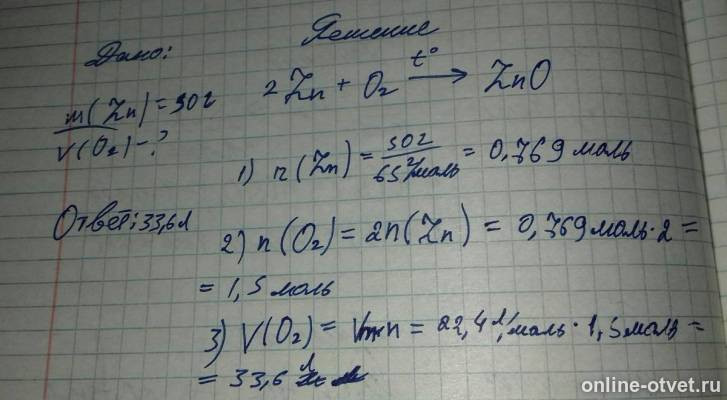 Решение
Дано:
m(Zn)=50г
V(O₂)-?
2Zn + O₂ t°→ ZnO
1) n(Zn) = 50г/65г/моль = 0,769 моль
Ответ: 33,6л
2) n(O₂) = 2n(Zn) = 0,769 моль·2 =
= 1,5 моль
3) V(O₂) = Vm·n = 22,4 л/моль · 1,5 моль =
= 33,6 л
online-otvet.ru